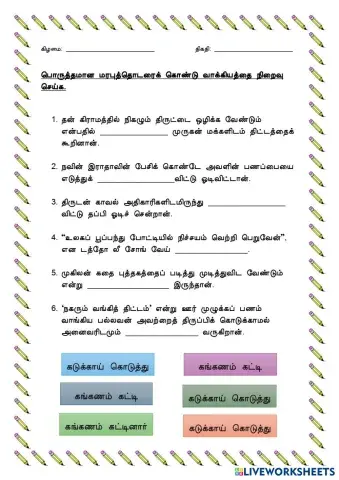 கிழமை: ____________________ திகதி: ____________________
பொருத்தமான மரபுத்தொடரைக் கொண்டு வாக்கியத்தை நிறைவு
செய்க.
1. தன் கிராமத்தில் நிகழும் திருட்டை ஒழிக்க வேண்டும்
என்பதில் ________________ முருகன் மக்களிடம் திட்டத்தைக்
கூறினான்.
2. நவின் இராதாவின் பேசிக் கொண்டே அவளின் பணப்பையை
எடுத்துக் __________________விட்டு ஓடிவிட்டான்.
3. திருடன் காவல் அதிகாரிகளிடமிருந்து __________________
விட்டு தப்பி ஓடிச் சென்றான்.
4. “உலகப் பூப்பந்து போட்டியில் நிச்சயம் வெற்றி பெறுவேன்”,
என டத்தோ லீ சோங் வேய் _________________.
5. முகிலன் கதை புத்தகத்தைப் படித்து முடித்துவிட வேண்டும்
என்று ___________________ இருந்தான்.
6. ‘நகரும் வங்கித் திட்டம்’ என்று ஊர் முழுக்கப் பணம்
வாங்கிய பல்லவன் அவற்றைத் திருப்பிக் கொடுக்காமல்
அனைவரிடமும் _________________ வருகிறான்.
கடுக்காய் கொடுத்து கங்கணம் கட்டி
கங்கணம் கட்டி கடுக்காய் கொடுத்து
கங்கணம் கட்டினார் கடுக்காய் கொடுத்து
LIVEWORKSHEETS